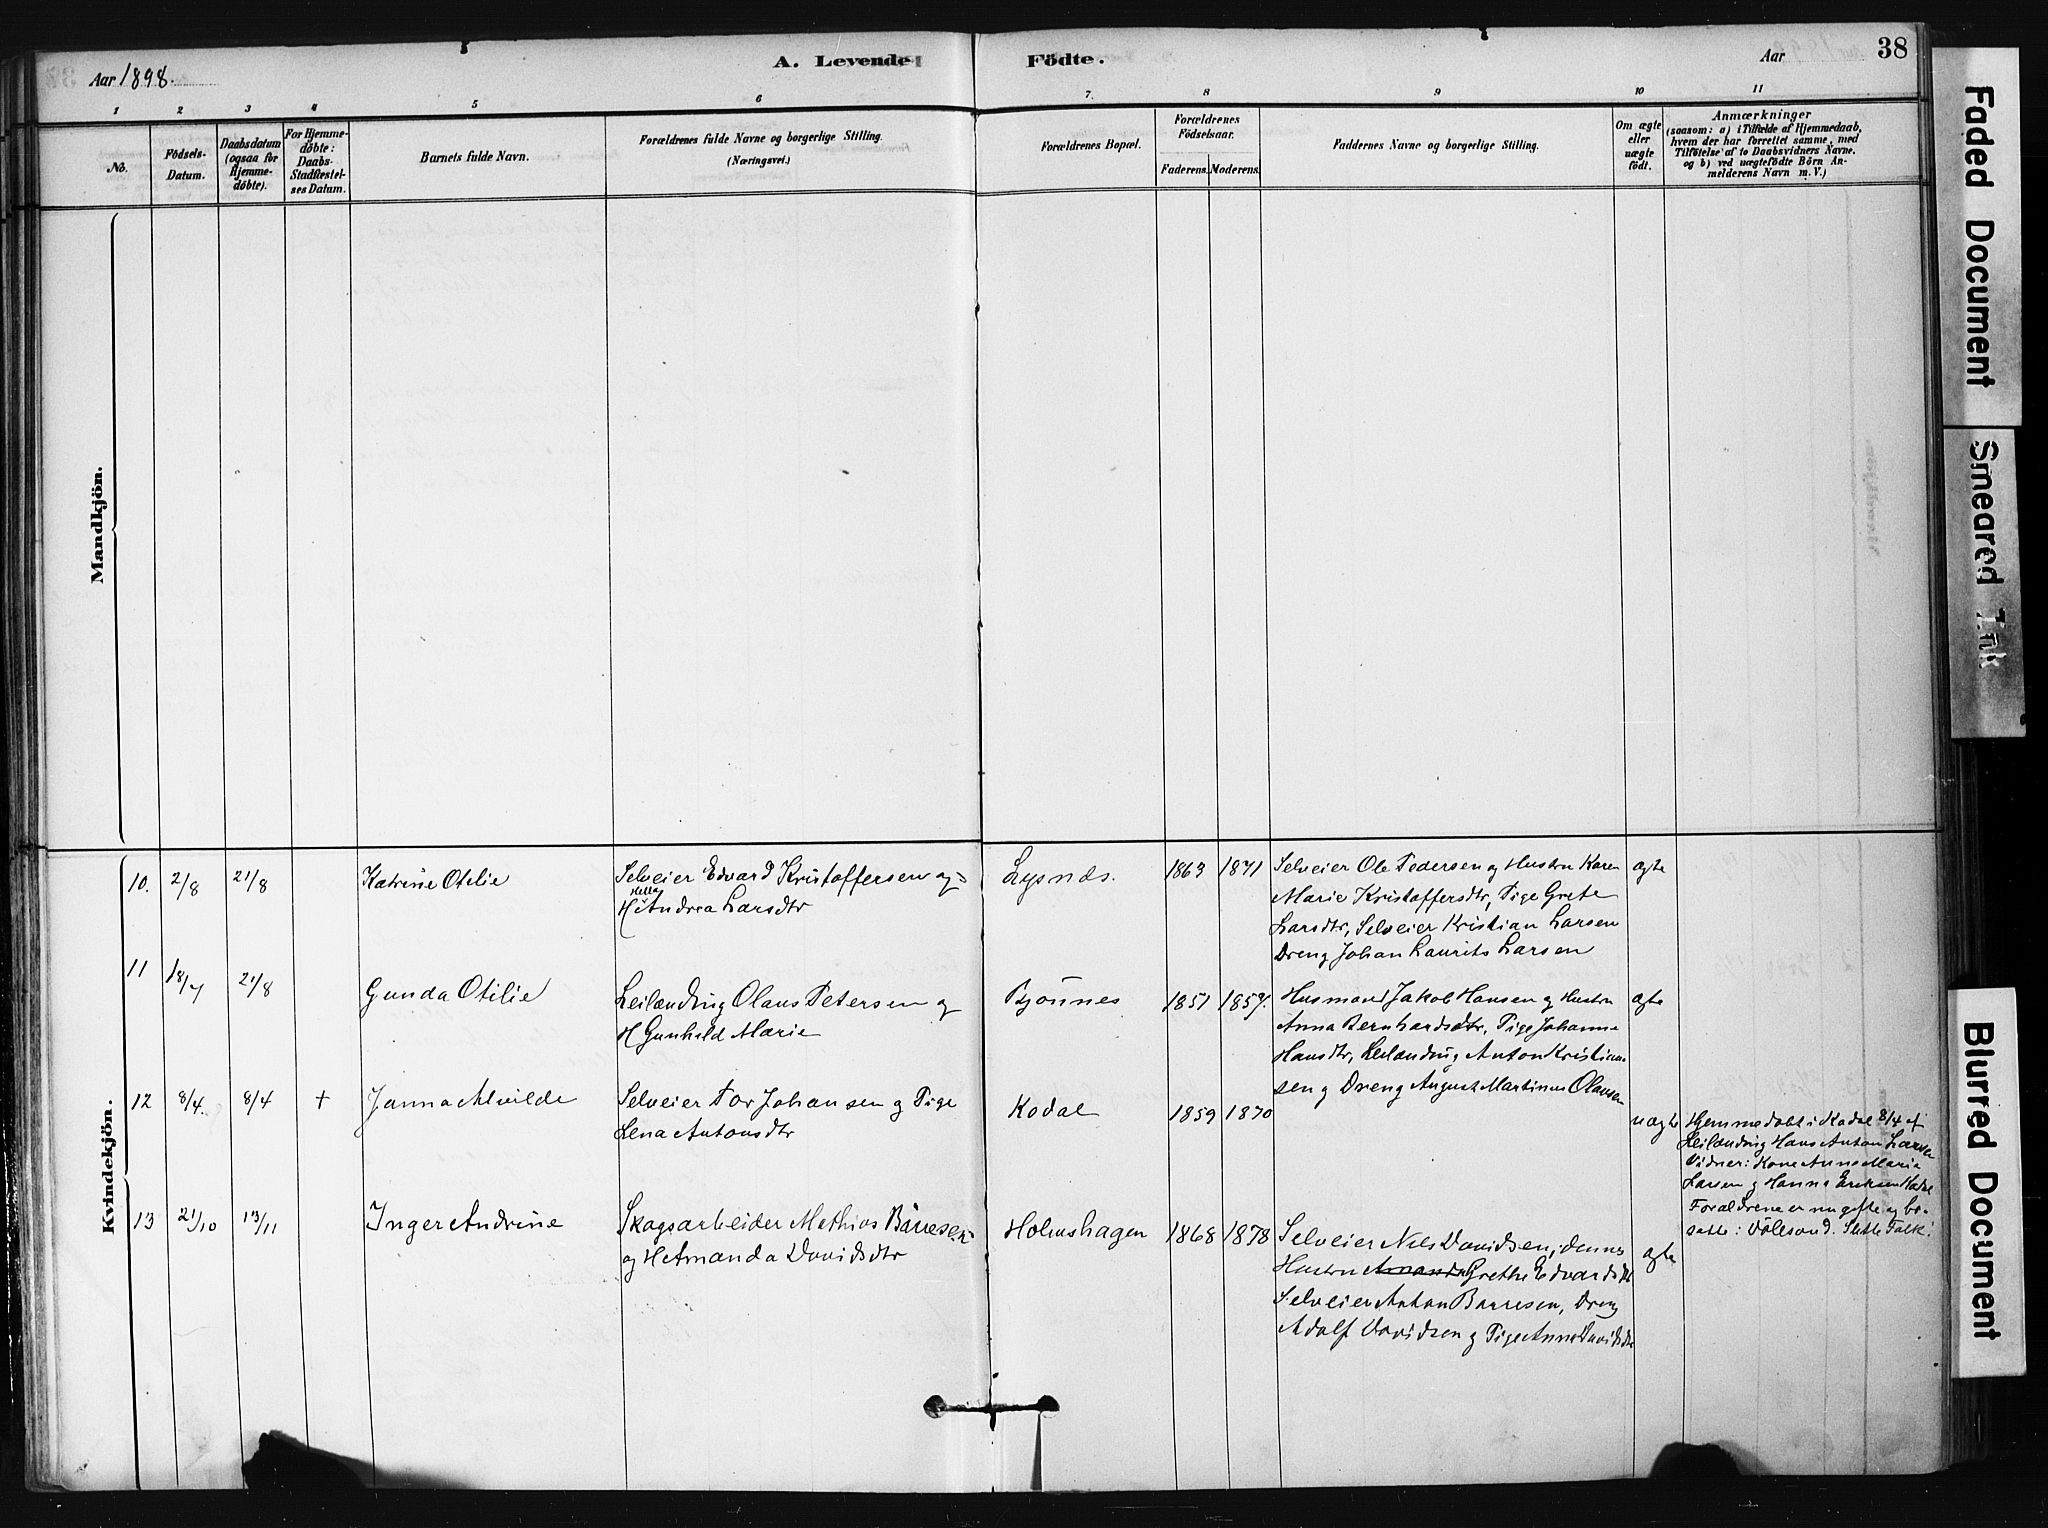 Aar 1898.
A. Levende Födte.
Aar
38
1 2 3 4 5 6 7 8 9 10 11
No.
Födsels-Datum.
Daabsdatum (ogsaa for Hjemme-döbte).
For Hjemme-döbte: Daabs-Stadfæstel-ses Datum.
Barnets fulde Navn.
Forældrenes fulde Navne og borgerlige Stilling.
(Næringsvei.)
Forældrenes Bopæl.
Forældrenes Födselsaar.
Faderens. Moderens.
Faddernes Navne og borgerlige Stilling.
Om ægte eller uægte födt.
Anmærkninger
(saasom: a) i Tilfælde af Hjemmedaab,
hvem der har forrettet samme, med
Tilföielse af to Daabsvidners Navne,
og b) ved uægtefödte Börn An-
melderens Navn m. V.)
Mandkjön.
Kvindekjön.
10. 2/8 21/8 Katrine Otilie
Selveier Edvard Kristoffersen og
H Andrea Larsdtr
Lysnes. 1863 1871
Selveier Ole Pedersen og Hustru Karen
Marie Kristoffersdtr, Pige Grete
Larsdtr, Selveier Kristian Larsen
Dreng Johan Laurits Larsen
ægte
11 18/7 21/8 Gunda Otilie
Leilænding Olaus Petersen og
H Gunhild Marie
Bjönnes 1851 1857.
Husmand Jakob Hansen og Hustru
Anna Bernhardsdtr, Pige Johanna
Hansdtr, Leilænding Anton Kristian-
sen og Dreng August Martinus Olaussen
ægte
12 8/4 8/4 + Janna Alvilde
Selveier Tor Johansen og Pige
Lena Antonsdtr
Kodal 1859 1870
uægte
Hjemmedöbt i Kodal 8/4 af
Leilænding Hans Anton Larsen
Vidner: Kone Anne Maria
Larsen og Hanna Eriksen Kodal
Forældrene er nu gifte og bo-
satte:
13 21/10 13/11 Inger Andrine
Skogsarbeider Mathias Bårresen
og H Amanda Davidsdtr
Holmshagen 1868 1878
Selveier Nils Davidsen, dennes
Hustru Amanda Grethe Edvardsdtr
Selveier Anton Barresen, Dreng
Adolf Davidsen og Pige Anna Davidsdtr
ægte
Faded Document
Smeared Ink
Blurred Document